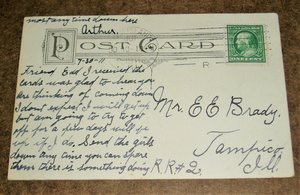 most any time down here
Arthur.
POST CARD
ONE CENT
R
7-30-11
Friend Edd I received the
cards was glad to hear you
are thinking of coming down
I dont expect I will get up
but am going to try to get
off for a few days will be
up if I do. Send the girls
down any time you can spare
them there is something doing
Mr. E E Brady.
Tampico,
Ill.
R.R.#2.